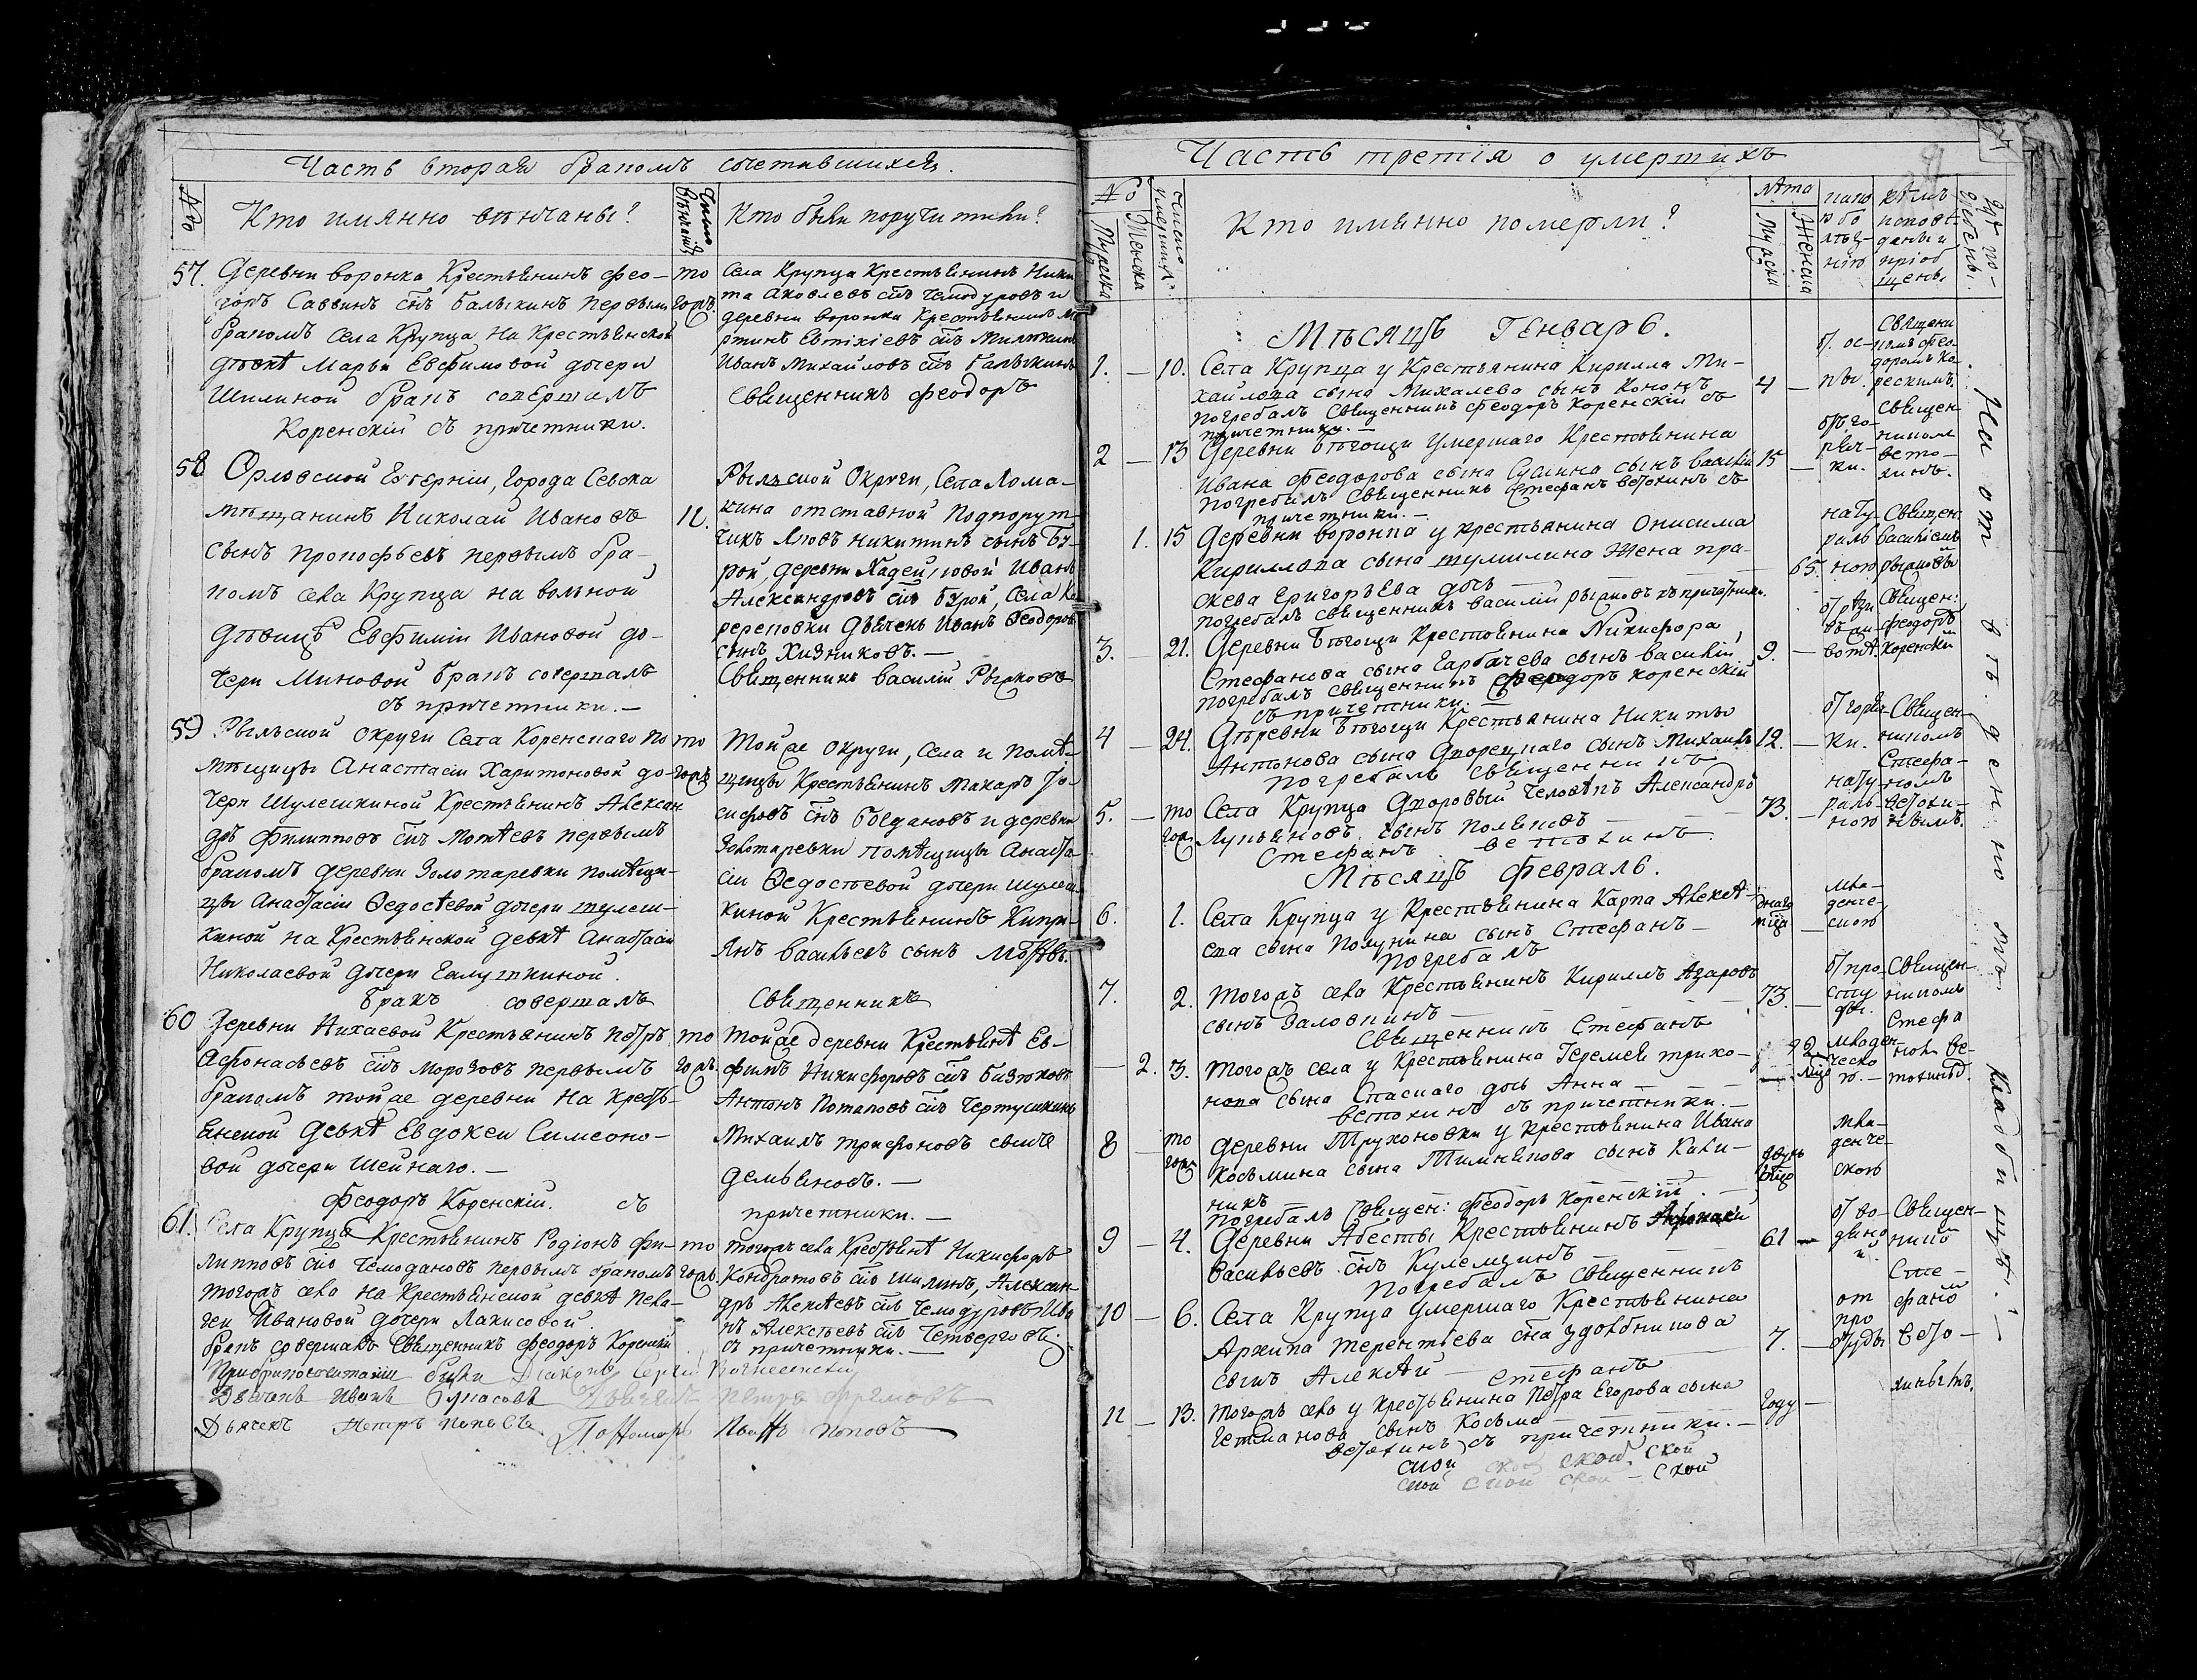 Часть вторая бракомъ сочетавшихся.
№
Кто имянно вѣнчаны?
Число вѣнчанія
Кто были поручители?
57. Деревни Воронка Крестьянинъ Фео-
доръ Саввинъ снъ Балыкинъ первымъ
бракомъ села Крупца на Крестьянской
дѣвкѣ Марьи Евфимовой дочери
Шилиной бракъ совершалъ
Коренскій съ причетники.
то
гожъ.
Села Крупца Крестьянинъ Ники
та Яковлевъ снъ Чемодуровъ и
деревни Воронка Крестьянинъ
Евтихіевъ снъ
Иванъ Михайловъ снъ Балыкинъ
Священникъ Феодоръ
58 Орловской Губерніи, Города Севска
мѣщанинъ Николай Ивановъ
сынъ Прокофьевъ первымъ бра-
комъ села Крупца на вольной
дѣвицѣ Евфиміи Ивановой до-
чери Миновой бракъ совершалъ
съ причетники. —
12.
Рыльской Округи, Села Лома-
кина отставной Подпорут-
чикъ Яковъ Никитинъ сынъ Бу-
рой, деревни Иванъ
Александровъ снъ Бурой, села Ко
нереповки Дьячекъ Иванъ Феодоровъ
сынъ Хизниковъ. —
Священникъ Василій Рыжковъ
59 Рыльской округи Села Коренскаго По
мѣщицы Анастасіи Харитоновой до-
чери Шулешкиной Крестьянинъ Алексан
дръ Филипповъ снъ Мотѣевъ первымъ
бракомъ деревни Золотаревки помѣщи-
цы Анастасіи Федосѣевой дочери Шулеш-
киной на Крестьянской девкѣ Анастасіи
Николаевой дочери Галушкиной.
Бракъ совершалъ
то
гожъ
Той же округи, села и помѣ-
щицы Крестьянинъ Макаръ Іо-
сифовъ снъ Богдановъ и деревни
Золотаревки помѣщицы Анаста
сіи Федосѣевой дочери Шулеш
киной Крестьянинъ Кипри-
янъ Васильевъ сынъ
Священникъ
60 Деревни Нихаевой Крестьянинъ Петръ
Афонасьевъ снъ Морозовъ первымъ
бракомъ той же деревни на Кресть-
янской девкѣ Евдокеи Симеоно-
вой дочери Шейнаго. —
Феодоръ Коренскій. съ
то
гожъ.
Той же деревни Крестьянѣ Ев-
фимъ Никифоровъ снъ Бизюковъ
Антонъ Потаповъ снъ Чертушкинъ
Михаилъ Трифоновъ сынъ
Демьяновъ. —
причетники. —
61. Села Крупца Крестьянинъ Родіонъ Фи-
липповъ снъ Чемодановъ первымъ бракомъ
тогожъ села на Крестьянской девкѣ Пела-
геи Ивановой дочери Лакисовой.
бракъ совершалъ Священникъ Феодоръ Коренскій
то
гожъ.
тогожъ села Крестьянѣ Никифоръ
Кондратовъ снъ Шилинъ, Алексан-
дръ Алексѣевъ снъ Чемодуровъ Ива
нъ Алексѣевъ снъ Четверговъ.
съ причетники. —
При бракосочетаніи были Діаконъ Сергій Вознесенскій
Дьячекъ Иванъ Дьячекъ Петръ
Дьячекъ Петръ Поповъ Пономарь Поповъ
Часть третія о умершихъ
№
Мужеска
Женска
Число умершихъ
Кто имянно померли?
Лѣта
Мужски
Женски
какою болѣз-
нію
кѣмъ
исповѣ-
даны и
пріоб
щены.
Гдѣ по-
гребены.
Мѣсяцъ Генварь.
1. — 10. Села Крупца у Крестьянина Кирилла Ми-
хайлова сына Михалева сынъ Кононъ
погребалъ Священникъ Феодоръ Коренскій съ
причетники. —
4 —
от ос-
пы.
Священи
комъ Фео-
доромъ Ко-
ренскимъ.
2 — 13 Деревни Бѣгощи умершаго Крестьянина
Ивана Феодорова сына Сушина сынъ Василій
погребалъ Священникъ Стефанъ Ветохинъ съ
причетники. —
15 —
от го-
ряч-
ки.
Священ
никомъ
вето-
хинъ.
1. 15 Деревни Воронка у крестьянина Онисима
Кириллова сына Шумилина жена Пра-
сковья Григорьева дочь
погребалъ Священникъ Василій Рыжковъ съ причетники.
65.
нату-
раль
ною
Священ
Василіемъ
Рыжковы
3. — 21. Деревни Бѣгощи Крестьянина Никифора
Стефанова сына Гарбачева сынъ Василій
погребалъ Священникъ Феодоръ Коренскій
съ причетники. —
9. —
от рѣзи
въ жи-
вотѣ.
Священ:
Феодоръ
Коренскій
4 — 24. Деревни Бѣгощи Крестьянина Никиты
Антонова сына Дворецкаго сынъ Михаилъ
погребалъ Священникъ
12. —
от горяч-
ки.
Священ-
никомъ
Стефа-
номъ
Ветохи-
нымъ.
5. — то
гожъ
Села Крупца Дворовый человѣкъ Александръ
Лукьяновъ сынъ Поляковъ —
Стефанъ Ветохинъ
73. —
нату-
раль-
ною
Мѣсяцъ Февраль.
6. 1. Села Крупца у Крестьянина Карпа Алексѣ-
ева сына Полунина сынъ Стефанъ —
погребалъ
днаго
мца —
мла-
денче-
скою
7. 2. Тогожъ села Крестьянинъ Кириллъ Азаровъ
сынъ Заловкинъ —
Священникъ Стефанъ
73. —
от про-
сту
ды.
Священ-
никомъ
Стефа
номъ Ве-
тохинъ.
— 2. 3. Тогожъ села у Крестьянина Геремеи Трихо-
нова сына Спаснаго дочь Анна —
Ветохинъ съ причетники. —
младен-
ческо
ю. —
8 — то
гожъ
деревни Трухоновки у крестьянина Ивана
Косьмина сына Тимнякова сынъ Кали-
никъ
погребалъ Священ: Феодоръ Коренскій. —
двухъ
мцъ
мла-
денче-
скою
9 — 4. Деревни Абесты Крестьянинъ
Васильевъ снъ Кулемзинъ
погребалъ Священникъ
61 —
от во-
дяно
й
Священ-
нико
Сте-
фано
мъ
Вето-
10 — 6. Села Крупца умершаго Крестьянина
Архипа Терентьева сна Удовникова
сынъ Алексѣй — Стефанъ
7. —
от
про
студы
11 — 13. Тогожъ села у Крестьянина Петра Егорова сына
Гетманова сынъ Косьма —
Ветохинъ съ причетники. —
Году —
ской ской ской ской
ской ской ской — ской
На отведенномъ кладбищѣ. —